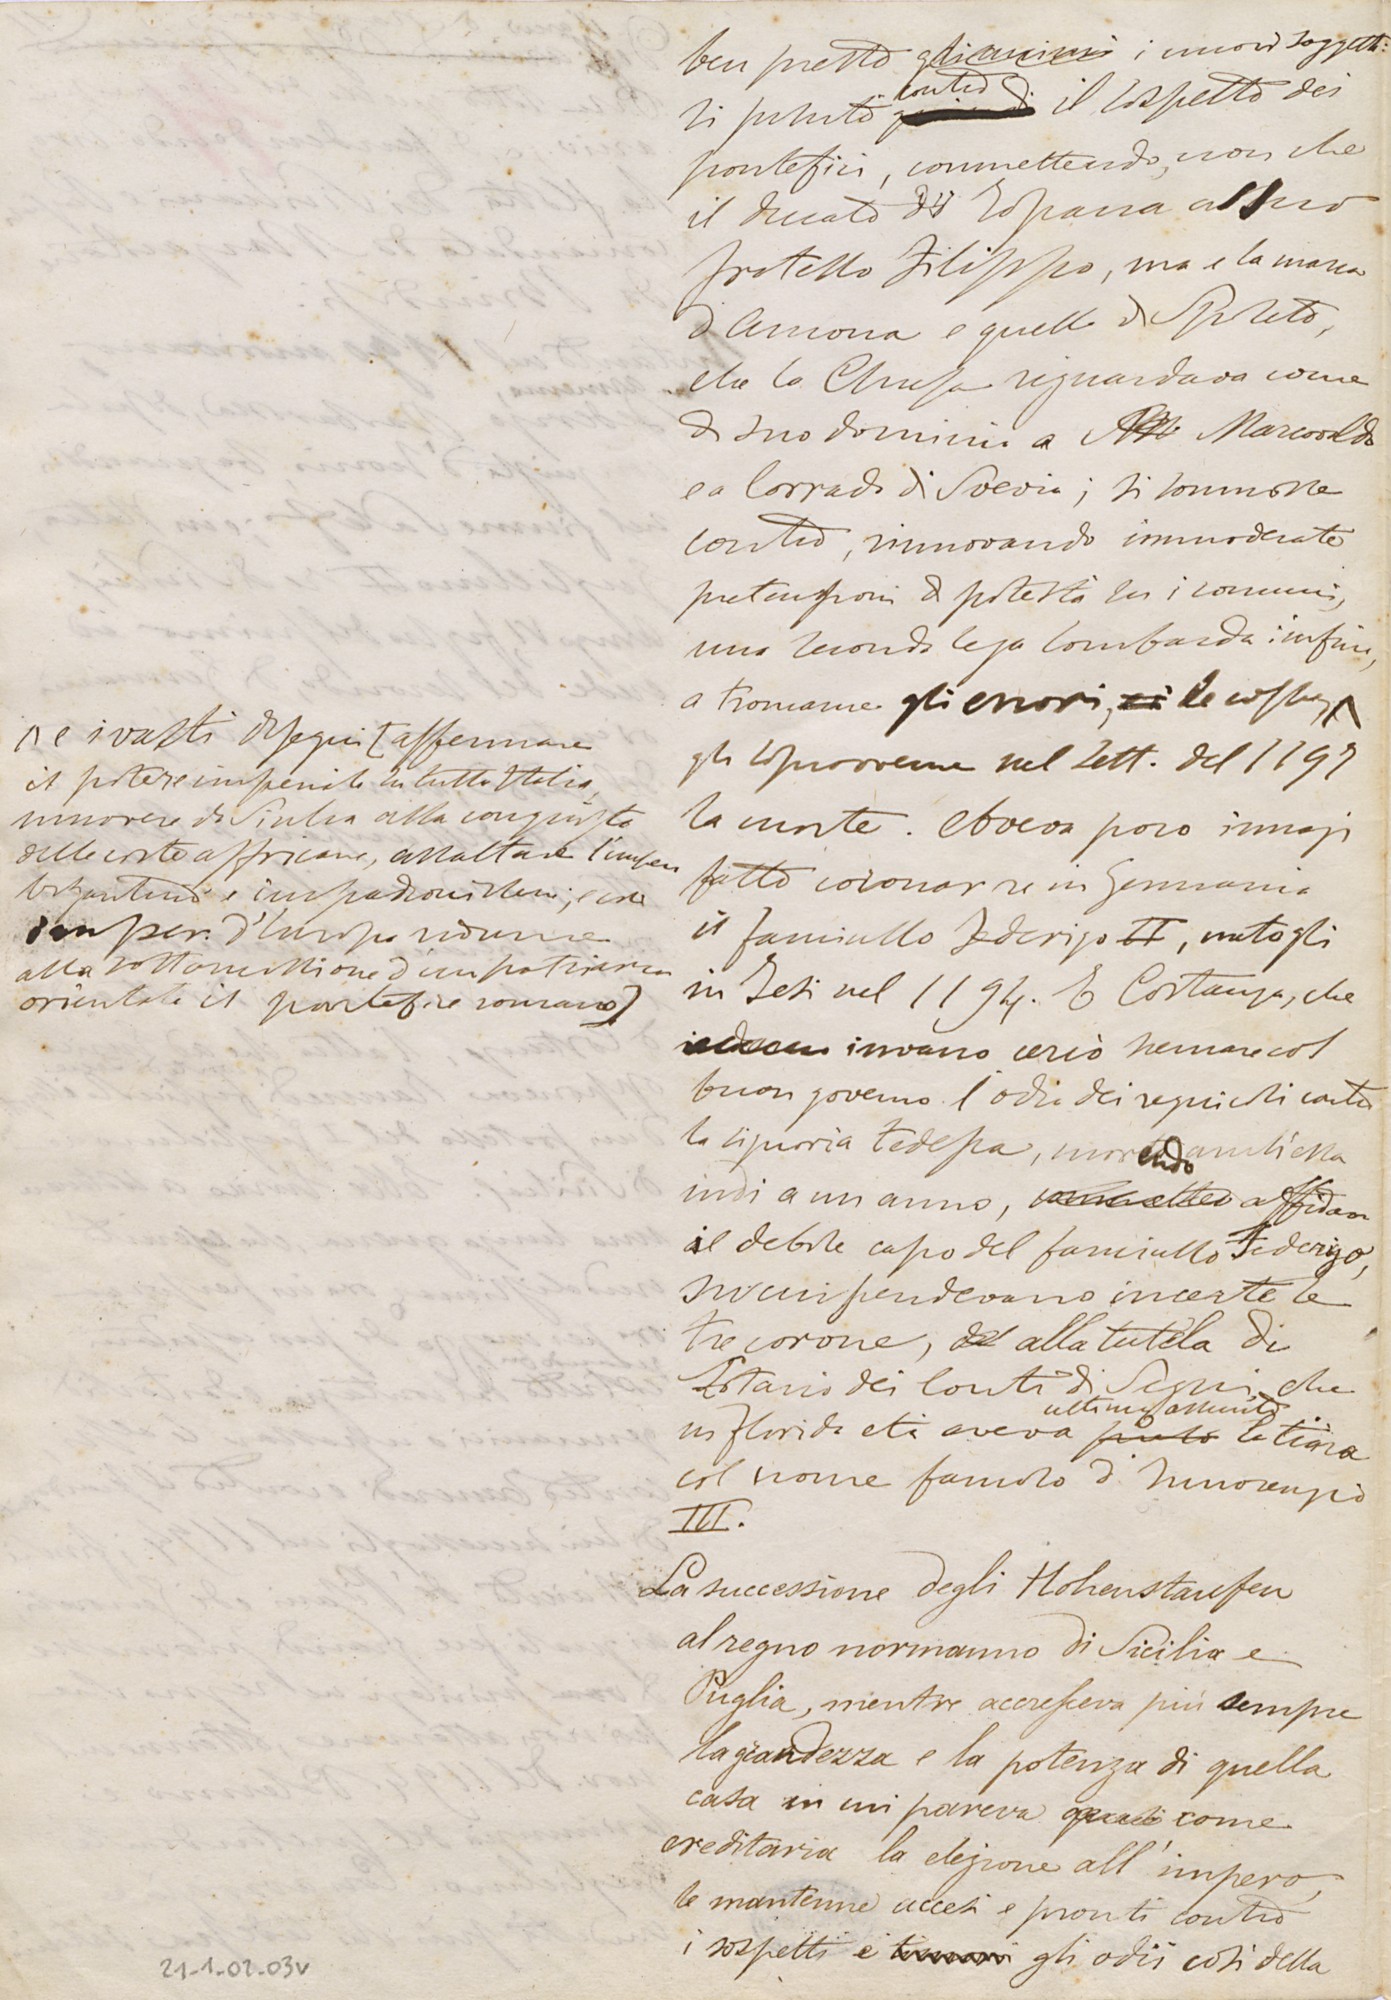 ben presto gli animi i nuovi soggetti:
si suscitò contro il sospetto dei
pontefici, commettendo, non che
il ducato di Toscana al suo
fratello Filippo, ma e la marca
d'Ancona e quella di Spoleto,
che la Chiesa riguardava come
di suo dominio a Marcovaldo
e a Corrado di Svevia; si commosse
contro, rinnovando immoderate
pretensioni di potestà su i comuni,
una seconda lega lombarda: infine,
a troncarne gli errori, le
gli sopravvenne nel Sett. del 1197
la morte. Aveva poco innazi
fatto coronar re in Germania
il fanciullo Federigo II, natogli
in Jesi nel 1194. E Costanza, che
invano cercò scemare col
buon governo l'odio dei regnicoli contro
la signoria tedesca, morendo anch'essa
indi a un anno, affidava
il debole capo del fanciullo Federigo,
su cui pendevano incerte le
tre corone, alla tutela di
Lotario dei Conti di Segni, che
in florida età aveva ultim. assunto la tiara
col nome famoso d'Innocenzio
III.
La successione degli Hohenstaufen
al regno normanno di Sicilia e
Puglia, mentre accresceva più sempre
la grandezza e la potenza di quella
casa in cui pareva quasi come
ereditaria la elezione all'impero,
le mantenne accesi e pronti contro
i sospetti e timori gli odii così della
e i vasti disegni [affermare
il potere imperiale in tutta Italia,
muovere di Sicilia alla conquista
delle coste affricane, assaltare l'impero
bizantino e impadronirsene; e
imper. d'Europa ridurre
alla sottomissione d'un patriarca
orientale il pontefice romano]
21-1-02-03v